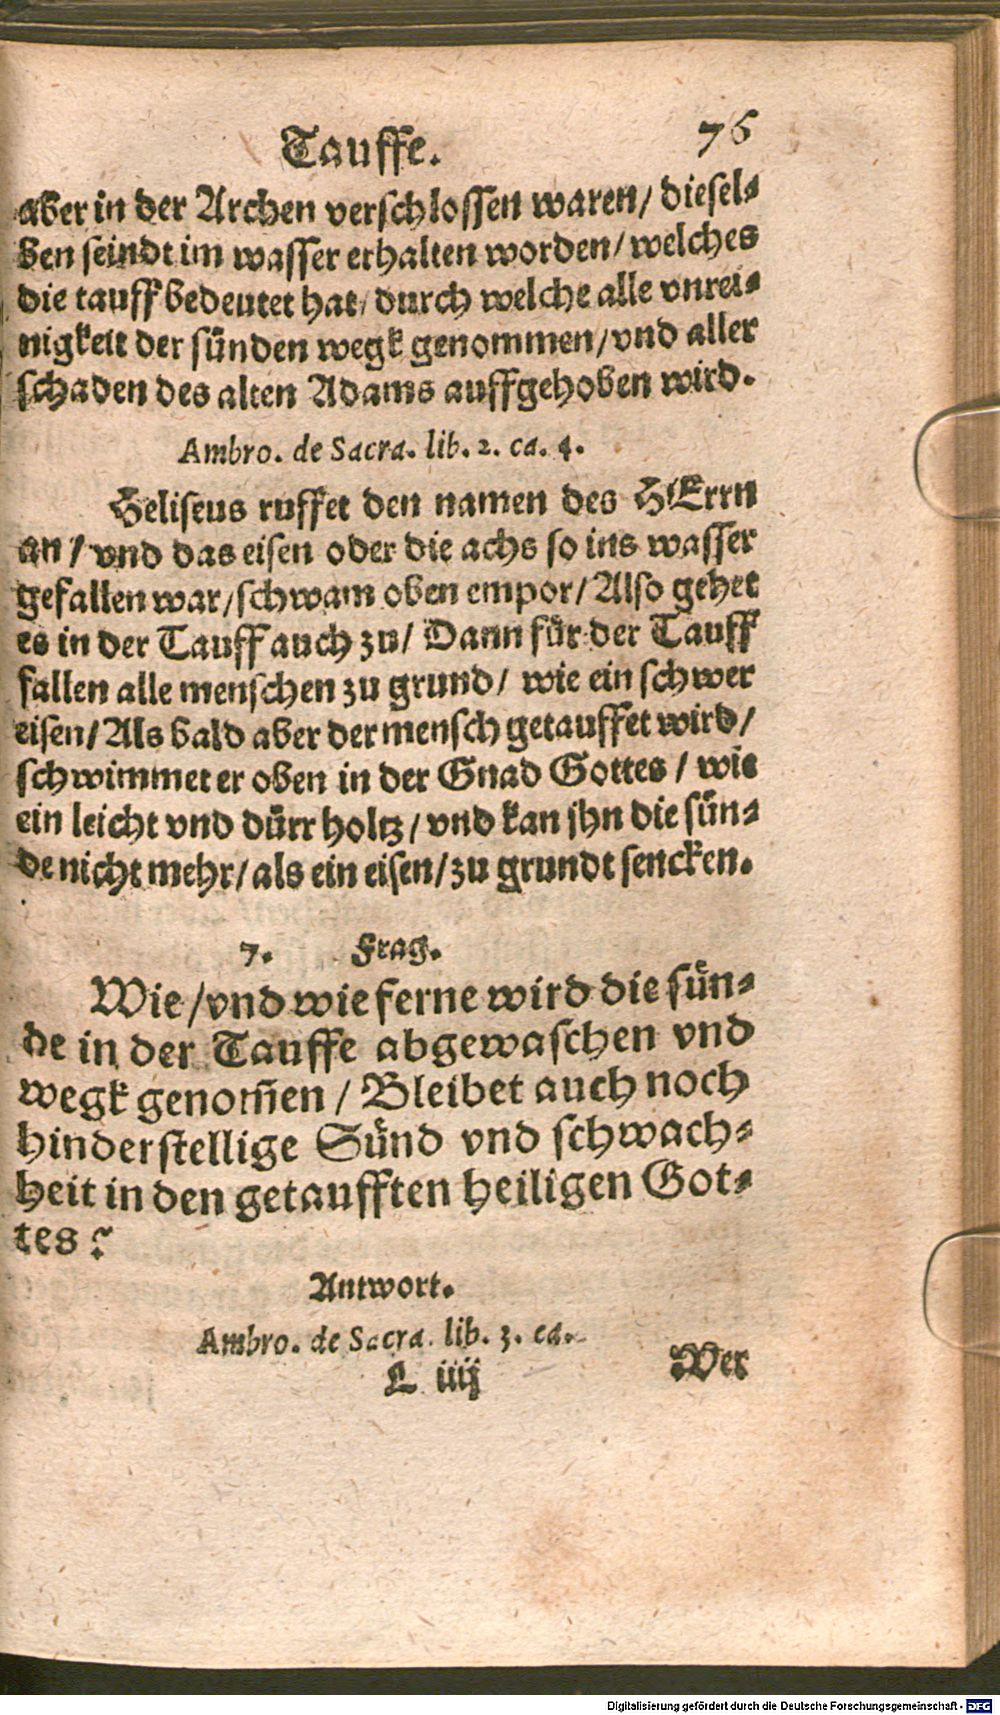 Tauffe. 76
aber in der Archen verschlossen waren/ diesel-
ben seindt im wasser erhalten worden/ welches
die tauff bedeutet hat/ durch welche alle vnrei-
nigkeit der sünden wegk genommen/ vnd aller
schaden des alten Adams auffgehoben wird.
Ambro. de Sacra. lib. 2. ca. 4.
Heliseus ruffet den namen des HErrn
an/ vnd das eisen oder die achs so ins wasser
gefallen war/ schwam oben empor/ Also gehet
es in der Tauff auch zu/ Dann für der Tauff
fallen alle menschen zu grund/ wie ein schwer
eisen/ Als bald aber der mensch getauffet wird/
schwimmet er oben in der Gnad Gottes/ wie
ein leicht vnd dürr holtz/ vnd kan jhn die sün-
de nicht mehr/ als ein eisen/ zu grundt sencken.
7. Frag.
Wie/ vnd wie ferne wird die sün-
de in der Tauffe abgewaschen vnd
wegk genom̃en/ Bleibet auch noch
hinderstellige Sünd vnd schwach-
heit in den getaufften heiligen Got-
tes?
Antwort.
Ambro. de Sacra. lib. 3. ca.
L iiij Wer
Digitalisierung gefördert durch die Deutsche Forschungsgemeinschaft - DFG